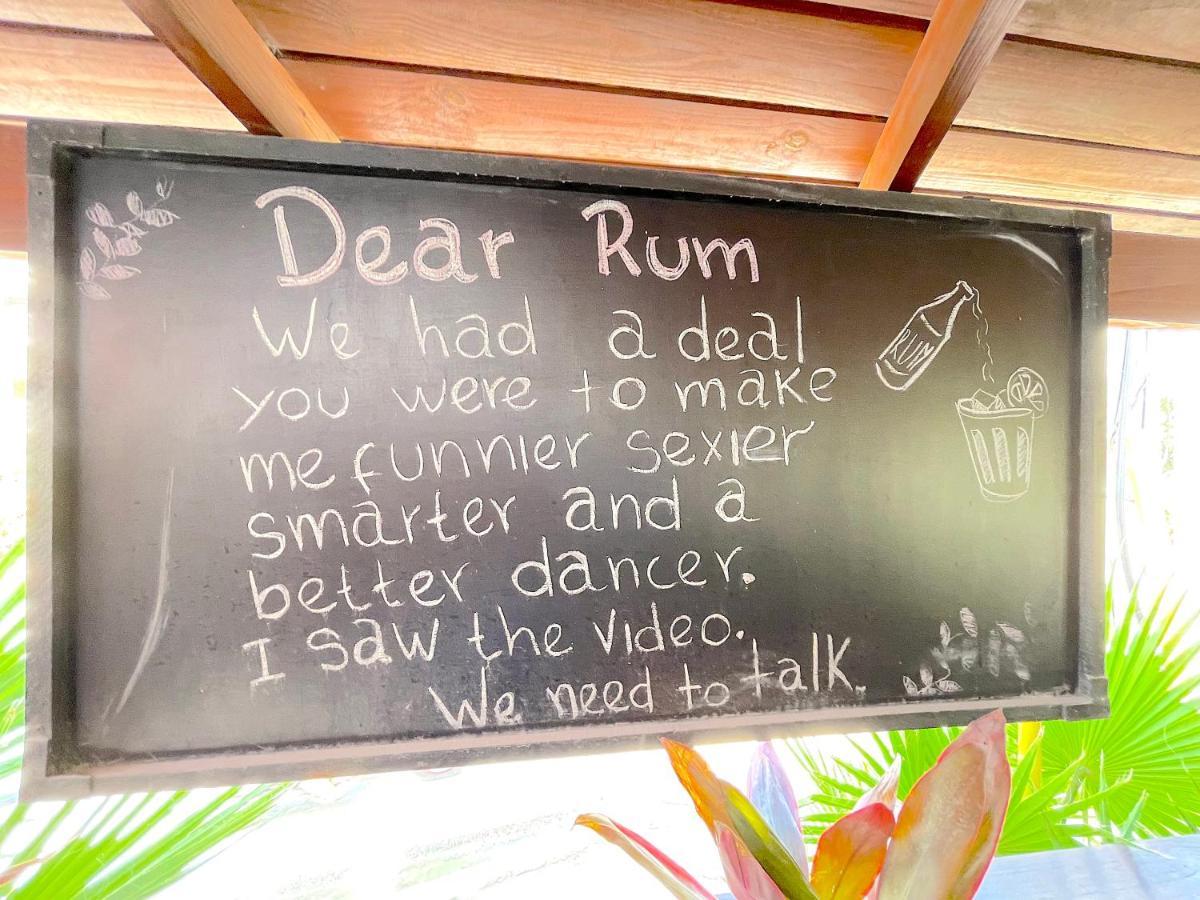 Dear Rum
We had a deal
you were to make
me funnier sexier
smarter and a
better dancer.
I saw the video.
We need to talk.
RUM